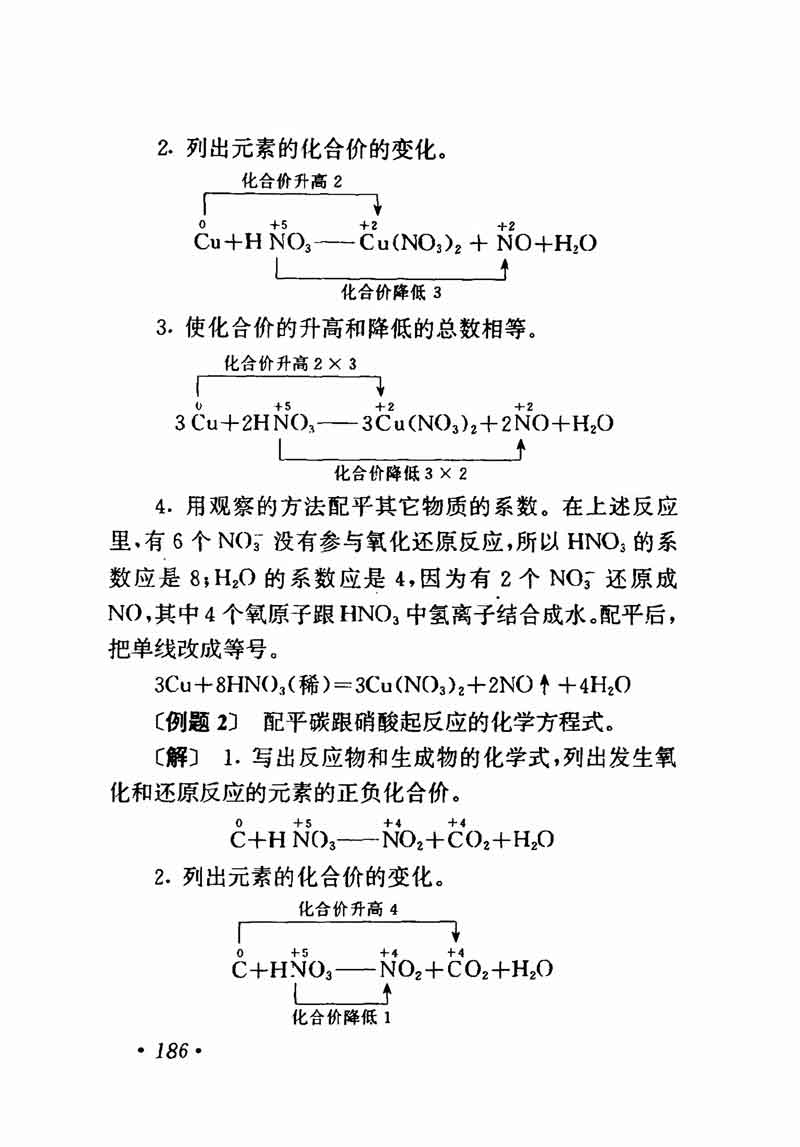 2. 列出元素的化合价的变化。
化合价升高 2
0 +5 +2 +2
Cu+HNO₃——Cu(NO₃)₂+NO+H₂O
化合价降低 3
3. 使化合价的升高和降低的总数相等。
化合价升高 2×3
0 +5 +2 +2
3Cu+2HNO₃——3Cu(NO₃)₂+2NO+H₂O
化合价降低 3×2
4. 用观察的方法配平其它物质的系数。在上述反应
里,有 6 个 NO₃⁻ 没有参与氧化还原反应,所以 HNO₃ 的系
数应是 8;H₂O 的系数应是 4,因为有 2 个 NO₃⁻ 还原成
NO,其中 4 个氧原子跟 HNO₃ 中氢离子结合成水。配平后,
把单线改成等号。
3Cu+8HNO₃(稀)=3Cu(NO₃)₂+2NO↑+4H₂O
〔例题 2〕 配平碳跟硝酸起反应的化学方程式。
〔解〕 1. 写出反应物和生成物的化学式,列出发生氧
化和还原反应的元素的正负化合价。
0 +5 +4 +4
C+HNO₃——NO₂+CO₂+H₂O
2. 列出元素的化合价的变化。
化合价升高 4
0 +5 +4 +4
C+HNO₃——NO₂+CO₂+H₂O
化合价降低 1
·186·